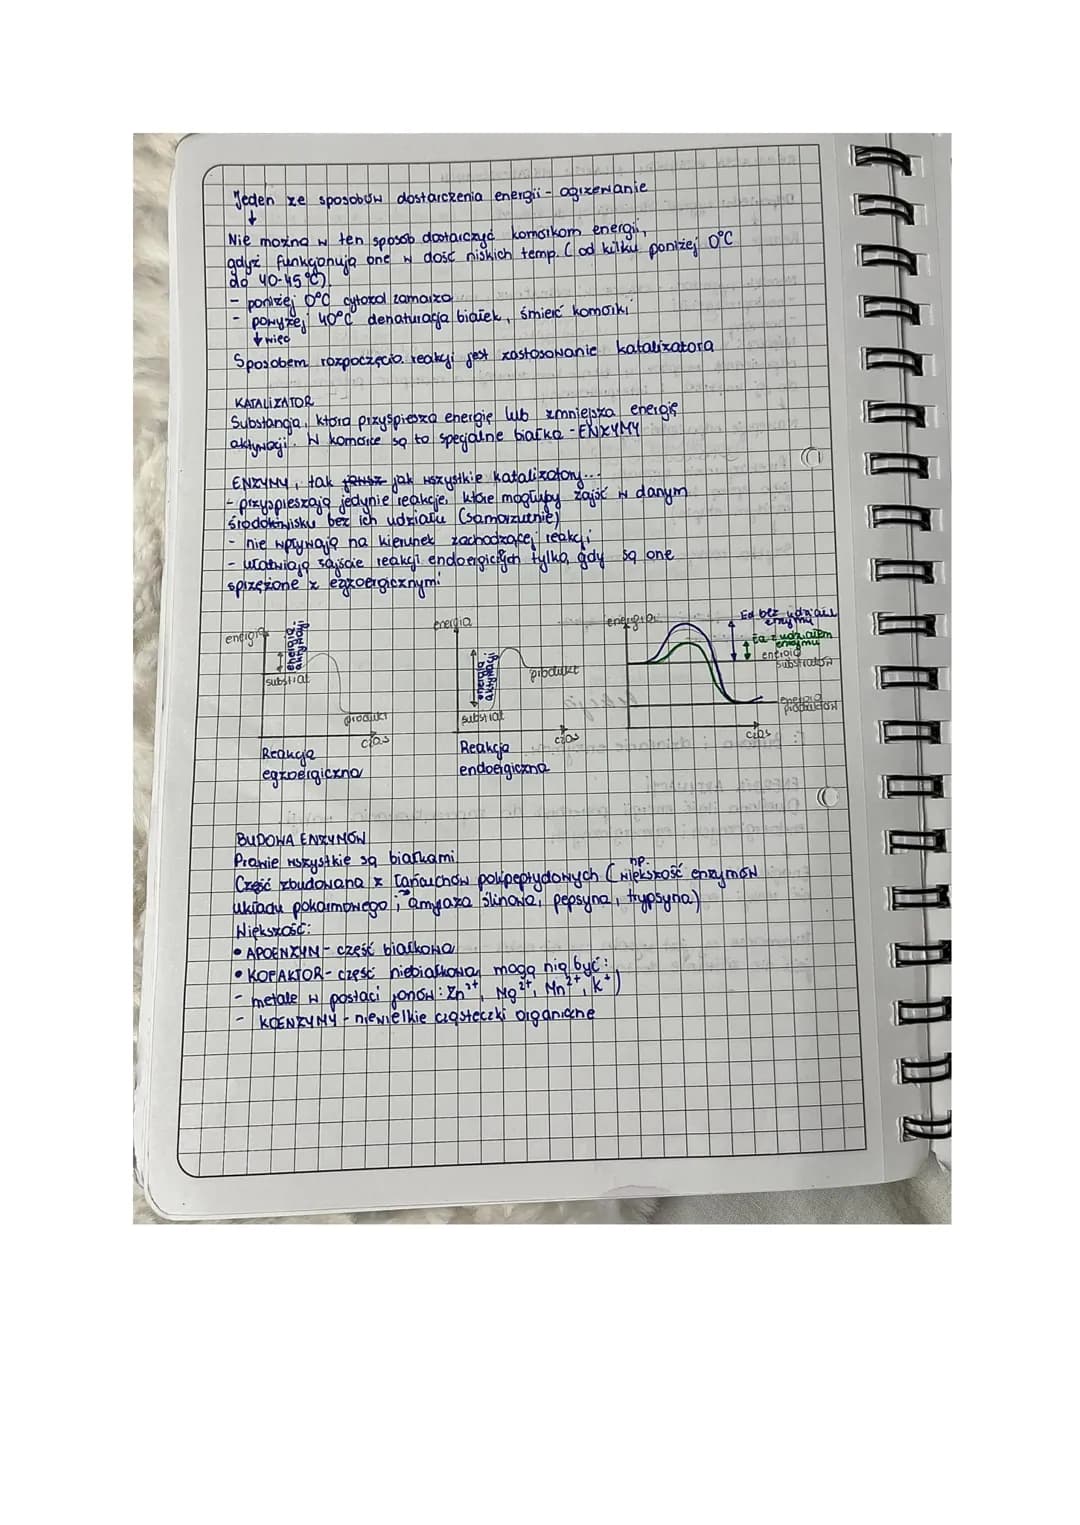 Jeden ze sposobów dostarczenia energii - ogrzewanie
↓
Nie można w ten sposób dostarczyć komórkom energii,
gdyż funkcjonują one w dość niskich temp. (od kilku poniżej 0°C
do 40-45°C).
- poniżej 0°C cytozol zamarza
- powyżej 40°C denaturacja białek, śmierć komórki
↓ więc
Sposobem rozpoczęcia reakcji jest zastosowanie katalizatora
KATALIZATOR
Substancja, która przyśpiesza energię lub zmniejsza energię
aktywacji. W komórce są to specjalne białka - ENZYMY
ENZYMY, tak jak wszystkie katalizatory...
- przyspieszają jedynie reakcje, które mogłyby zajść w danym
środowisku bez ich udziału (samorzutnie)
- nie wpływają na kierunek zachodzącej reakcji
- ułatwiają zajście reakcji endoergicznych tylko, gdy są one
sprzężone z egzoergicznymi
energia
energia aktywacji
substrat
produkt
czas
Reakcja
egzoergiczna
energia
energia aktywacji
produkt
substrat
czas
Reakcja
endoergiczna
energia
Ea bez udziału
enzymu
Ea z udziałem
enzymu
energia
substratów
energia
produktów
czas
BUDOWA ENZYMÓW
Prawie wszystkie są białkami
np.
Część zbudowana z łańcuchów polipeptydowych (większość enzymów
układu pokarmowego; amylaza ślinowa, pepsyna, trypsyna)
Większość:
• APOENZYM - część białkowa
• KOFAKTOR - część niebiałkowa, mogą nią być:
- metale w postaci jonów: Zn²⁺, Mg²⁺, Mn²⁺, K⁺)
- KOENZYMY - niewielkie cząsteczki organiczne